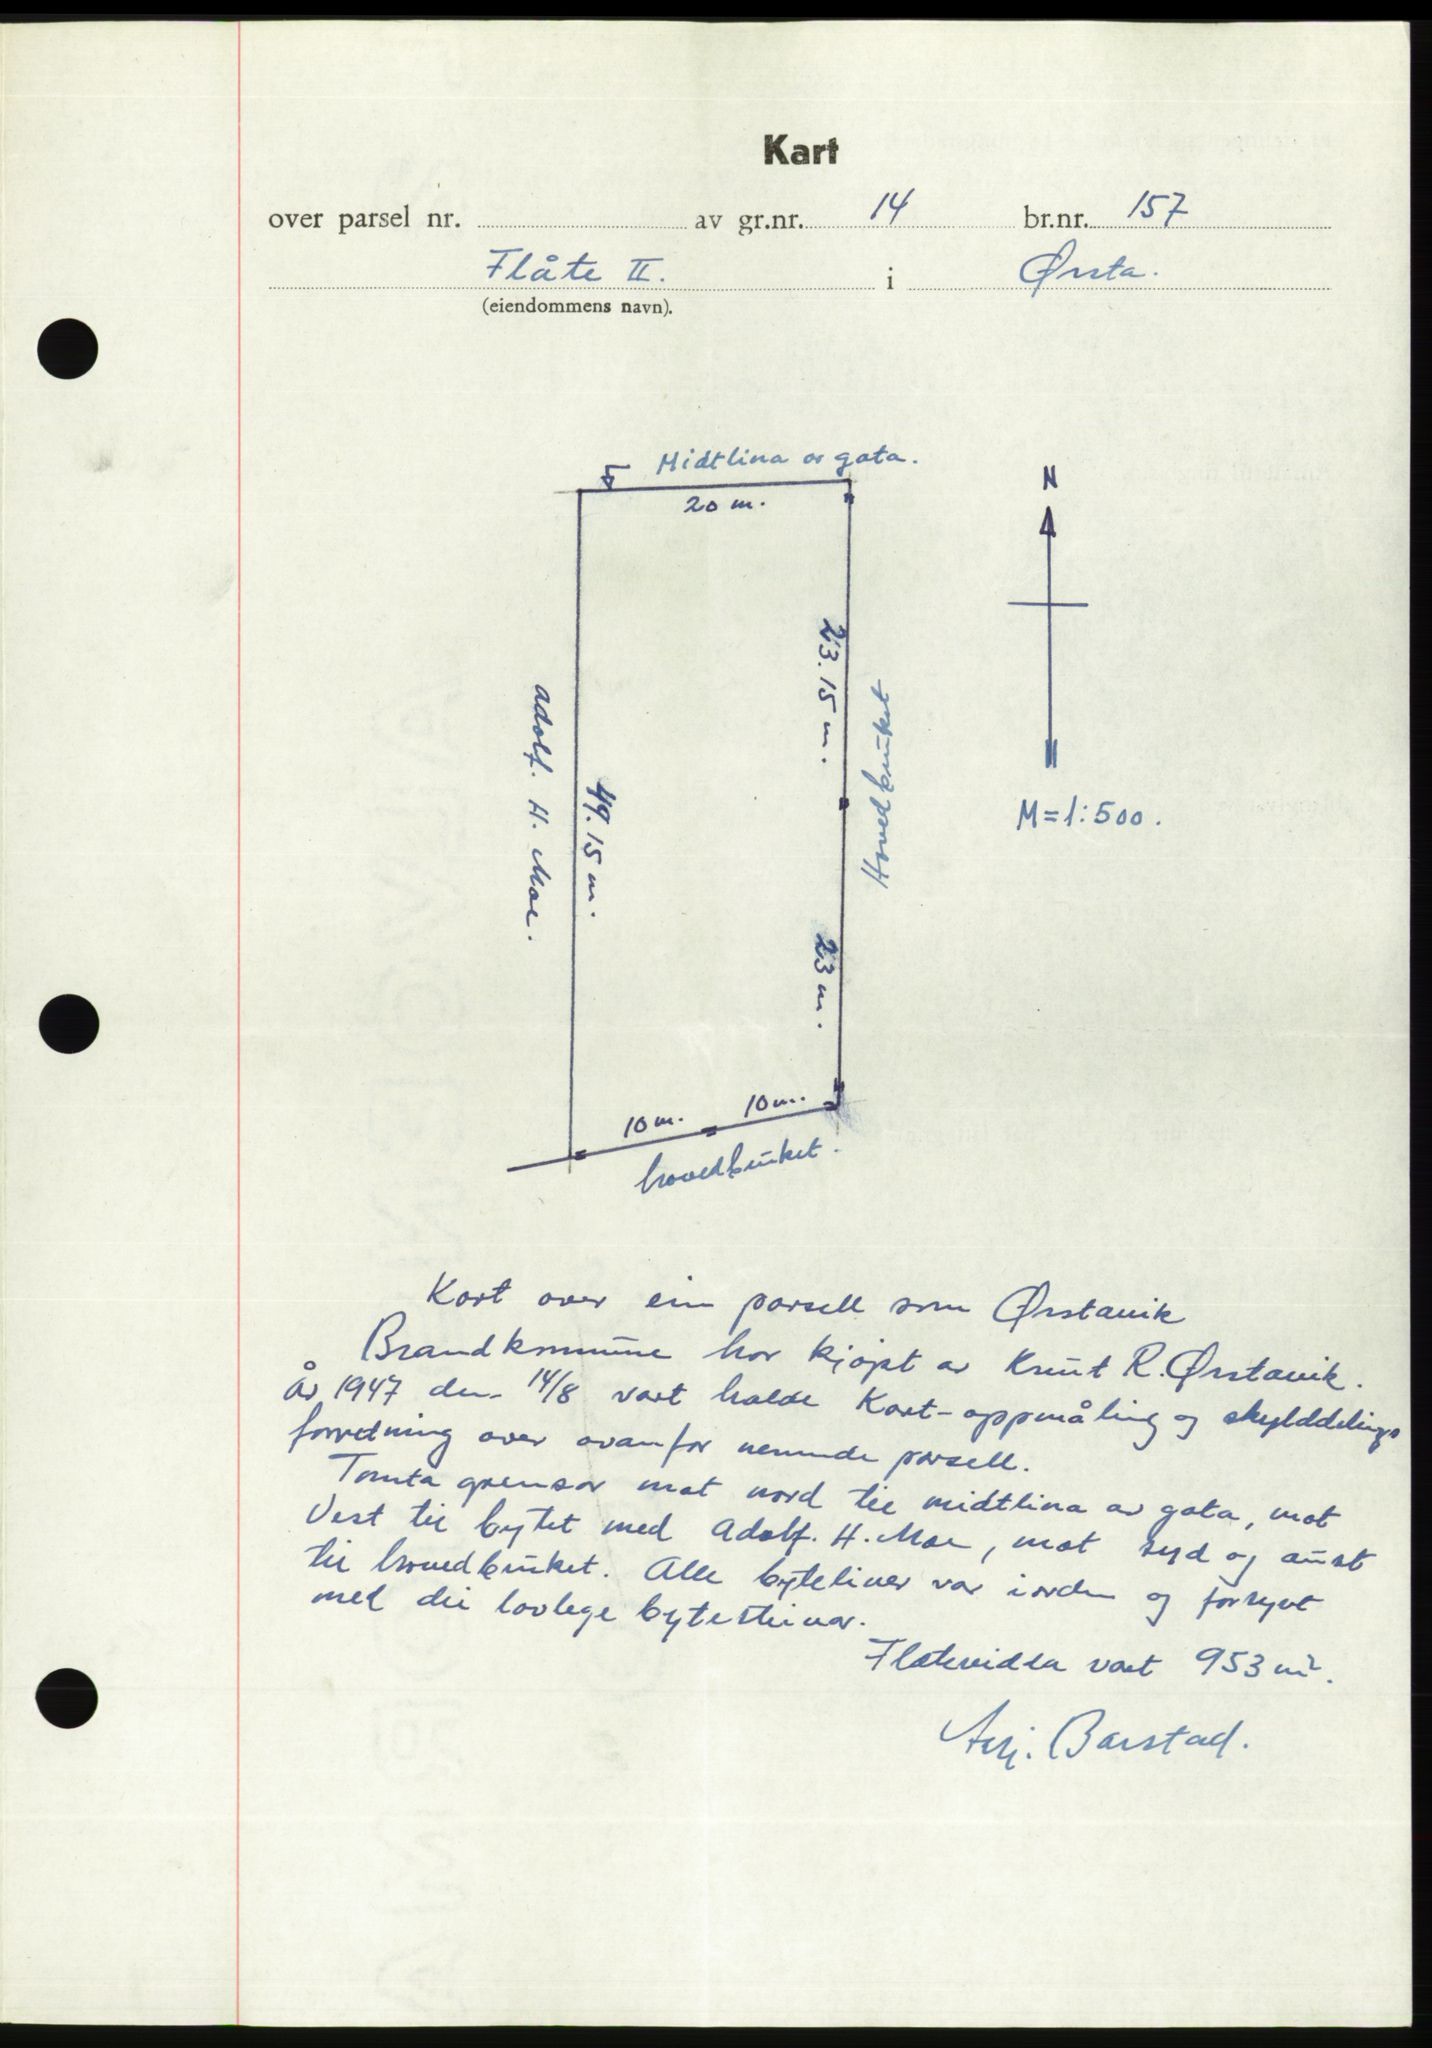 Kart
over parsel nr. av gr.nr. 14 br.nr. 157
Flåte II. i Ørsta.
(eiendommens navn).
Midtlina av gata.
20 m.
N
23.15 m.
Hovedbruket
adolf. H. Moe.
49.15 m.
M = 1:500.
23 m.
10 m. 10 m.
hovedbruket.
Kart over ein parsell som Ørstavik
Brandkommune har kjøpt av Knut R. Ørstavik.
År 1947 den 14/8 vart halde Kart-oppmåling og skylddelings
forretning over ovanfor nemnde parsell.
Tomta grensar mot nord til midtlina av gata, mot
Vest til bytet med Adolf. H. Moe, mot syd og aust
til hovedbruket. Alle byteliner var i orden og forsynt
med dei lovlege bytesteinar.
Flatevidda vart 953 m².
Barstad.